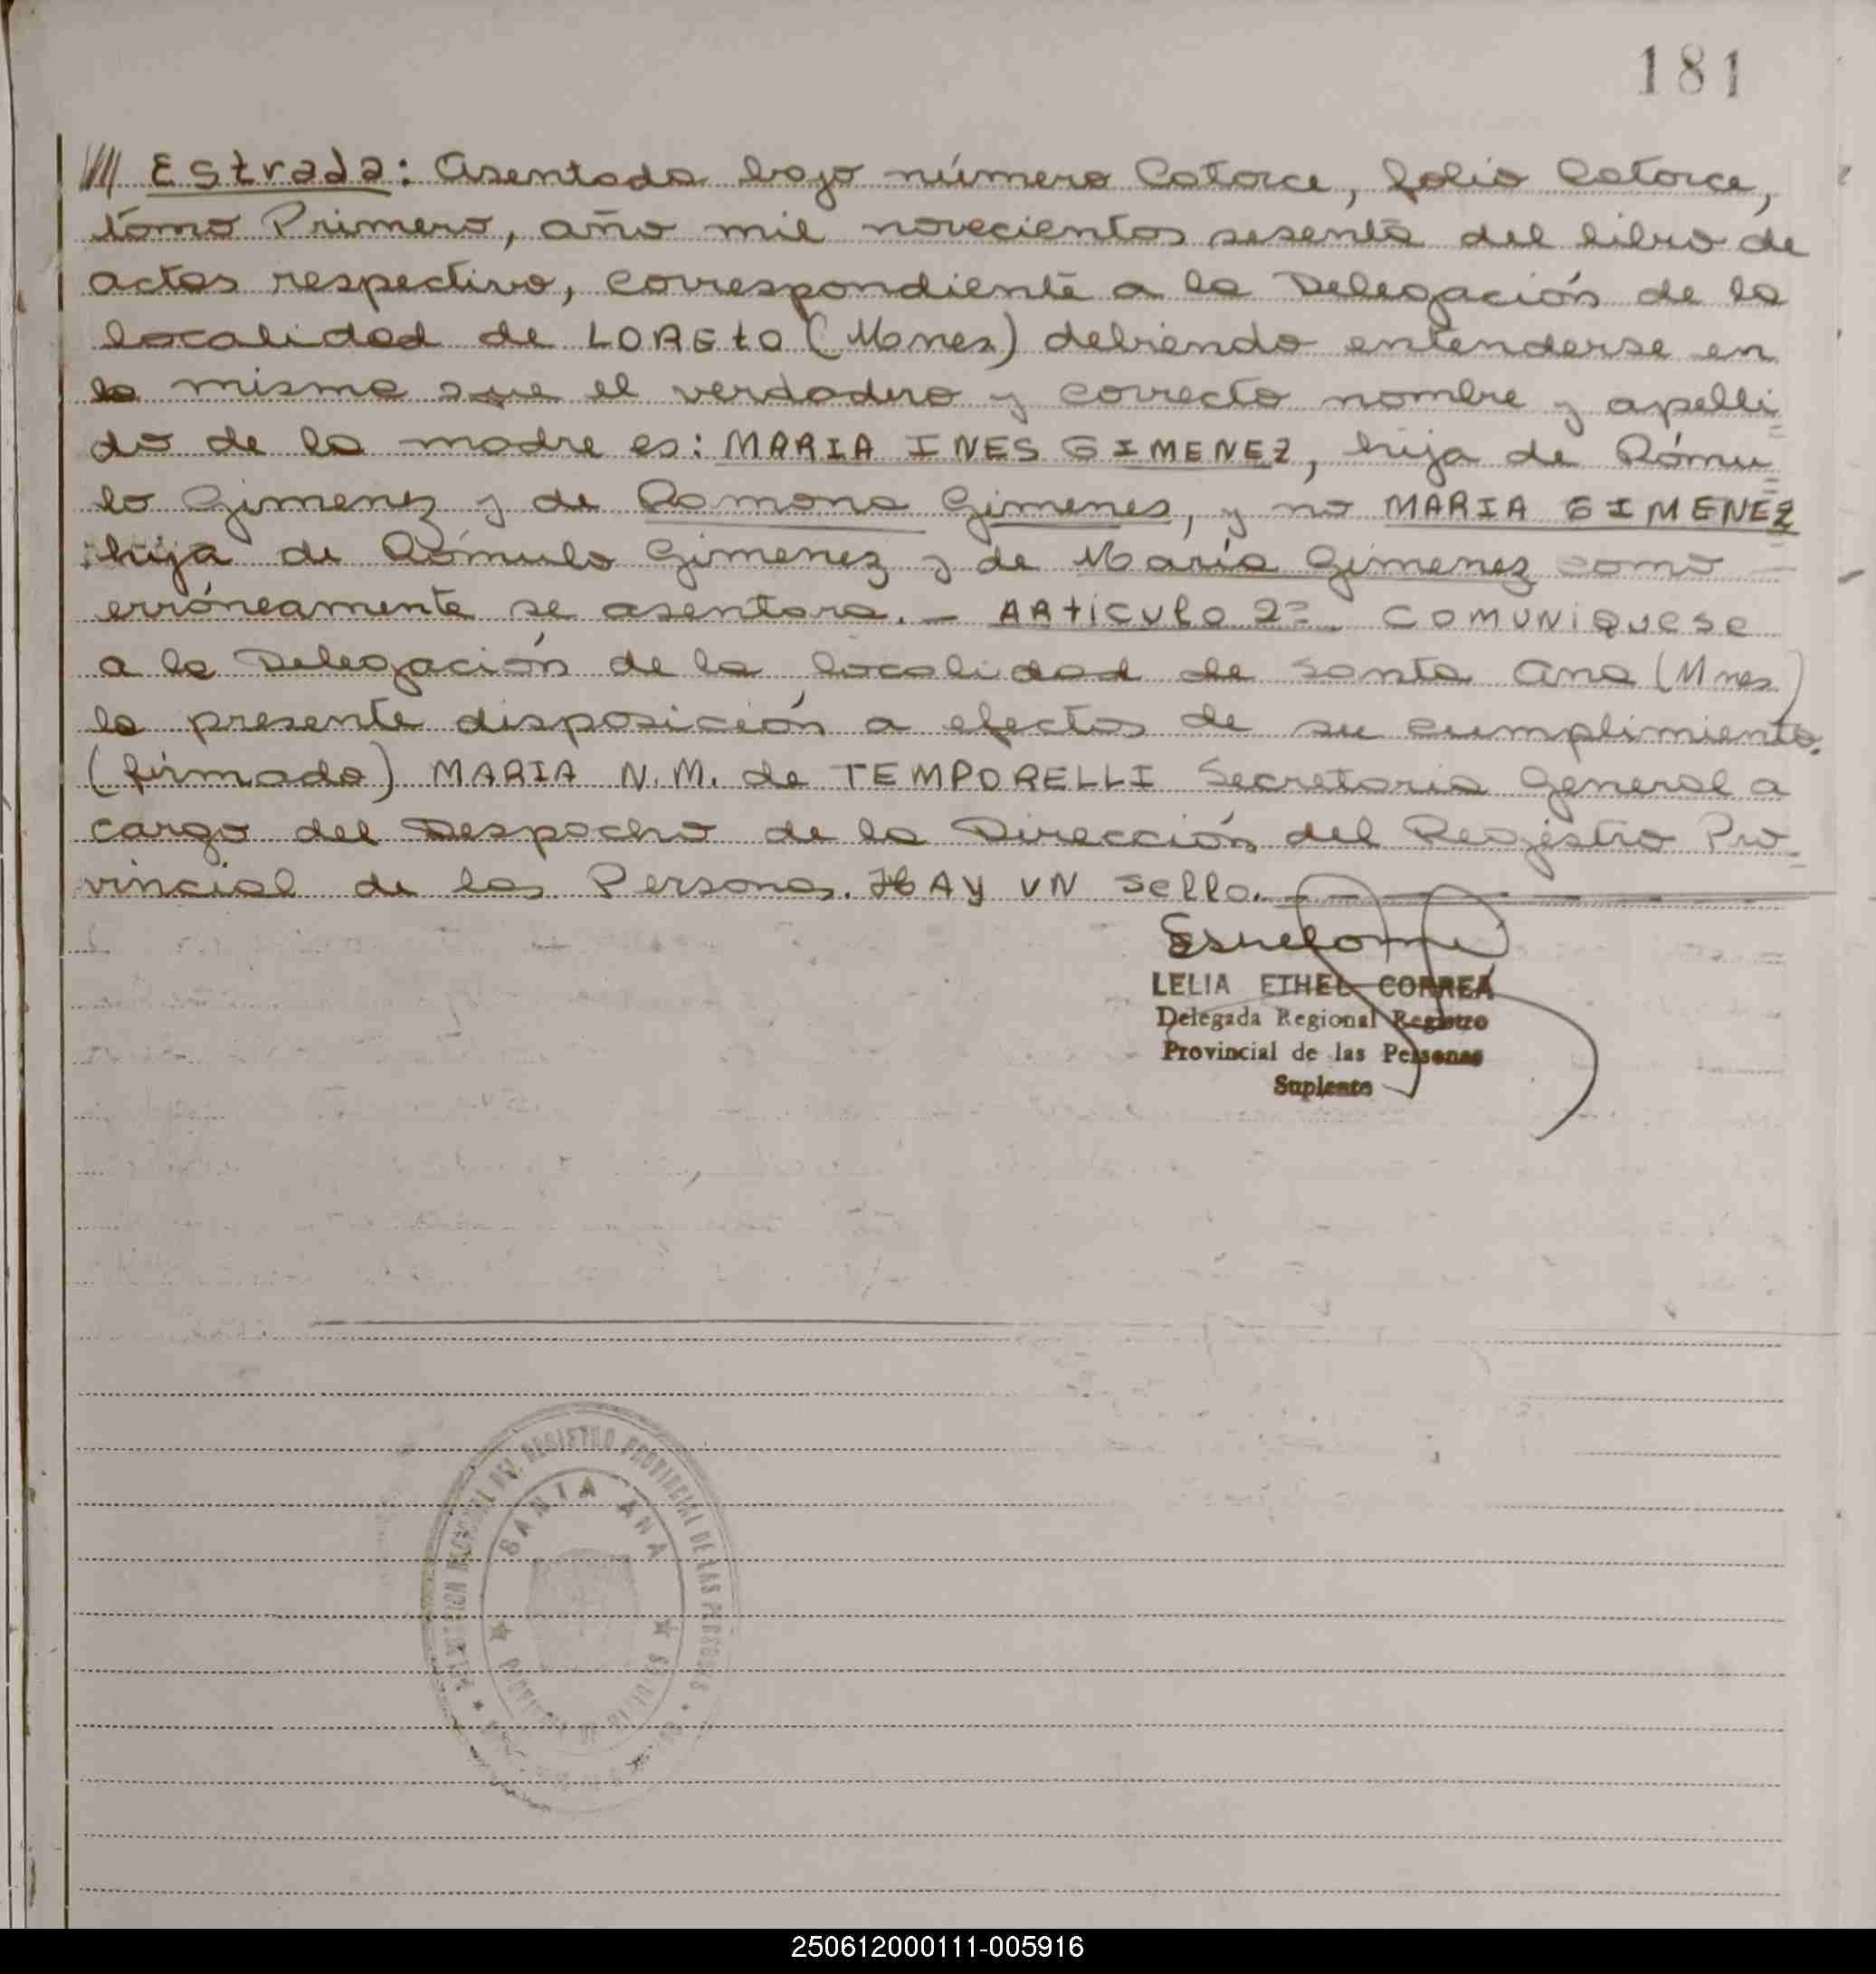 181
//// Estrada: Asentada bajo número Catorce, folio Catorce,
tomo Primero, año mil novecientos sesenta del libro de
actas respectivo, correspondiente a la Delegación de la
localidad de LORETO (Mnes) debiendo entenderse en
la misma que el verdadero y correcto nombre y apelli=
do de la madre es: MARIA INES GIMENEZ, hija de Rómu=
lo Gimenez y de Ramona Gimenes, y no MARIA GIMENEZ
hija de Rómulo Gimenez y de María Gimenez como =
erróneamente se asentara. - ARTICULO 2º. COMUNIQUESE
a la Delegación de la localidad de Santa Ana (Mnes)
la presente disposición a efectos de su cumplimiento.
(firmado) MARIA N.M. de TEMPORELLI Secretaria General a
cargo del Despacho de la Dirección del Registro Pro=
vincial de las Personas. HAY UN Sello.
LELIA ETHEL CORREA
Delegada Regional Registro
Provincial de las Personas
Suplente
DEL REGISTRO PROVINCIAL DE LAS PERSONAS
SANTA ANA
250612000111-005916